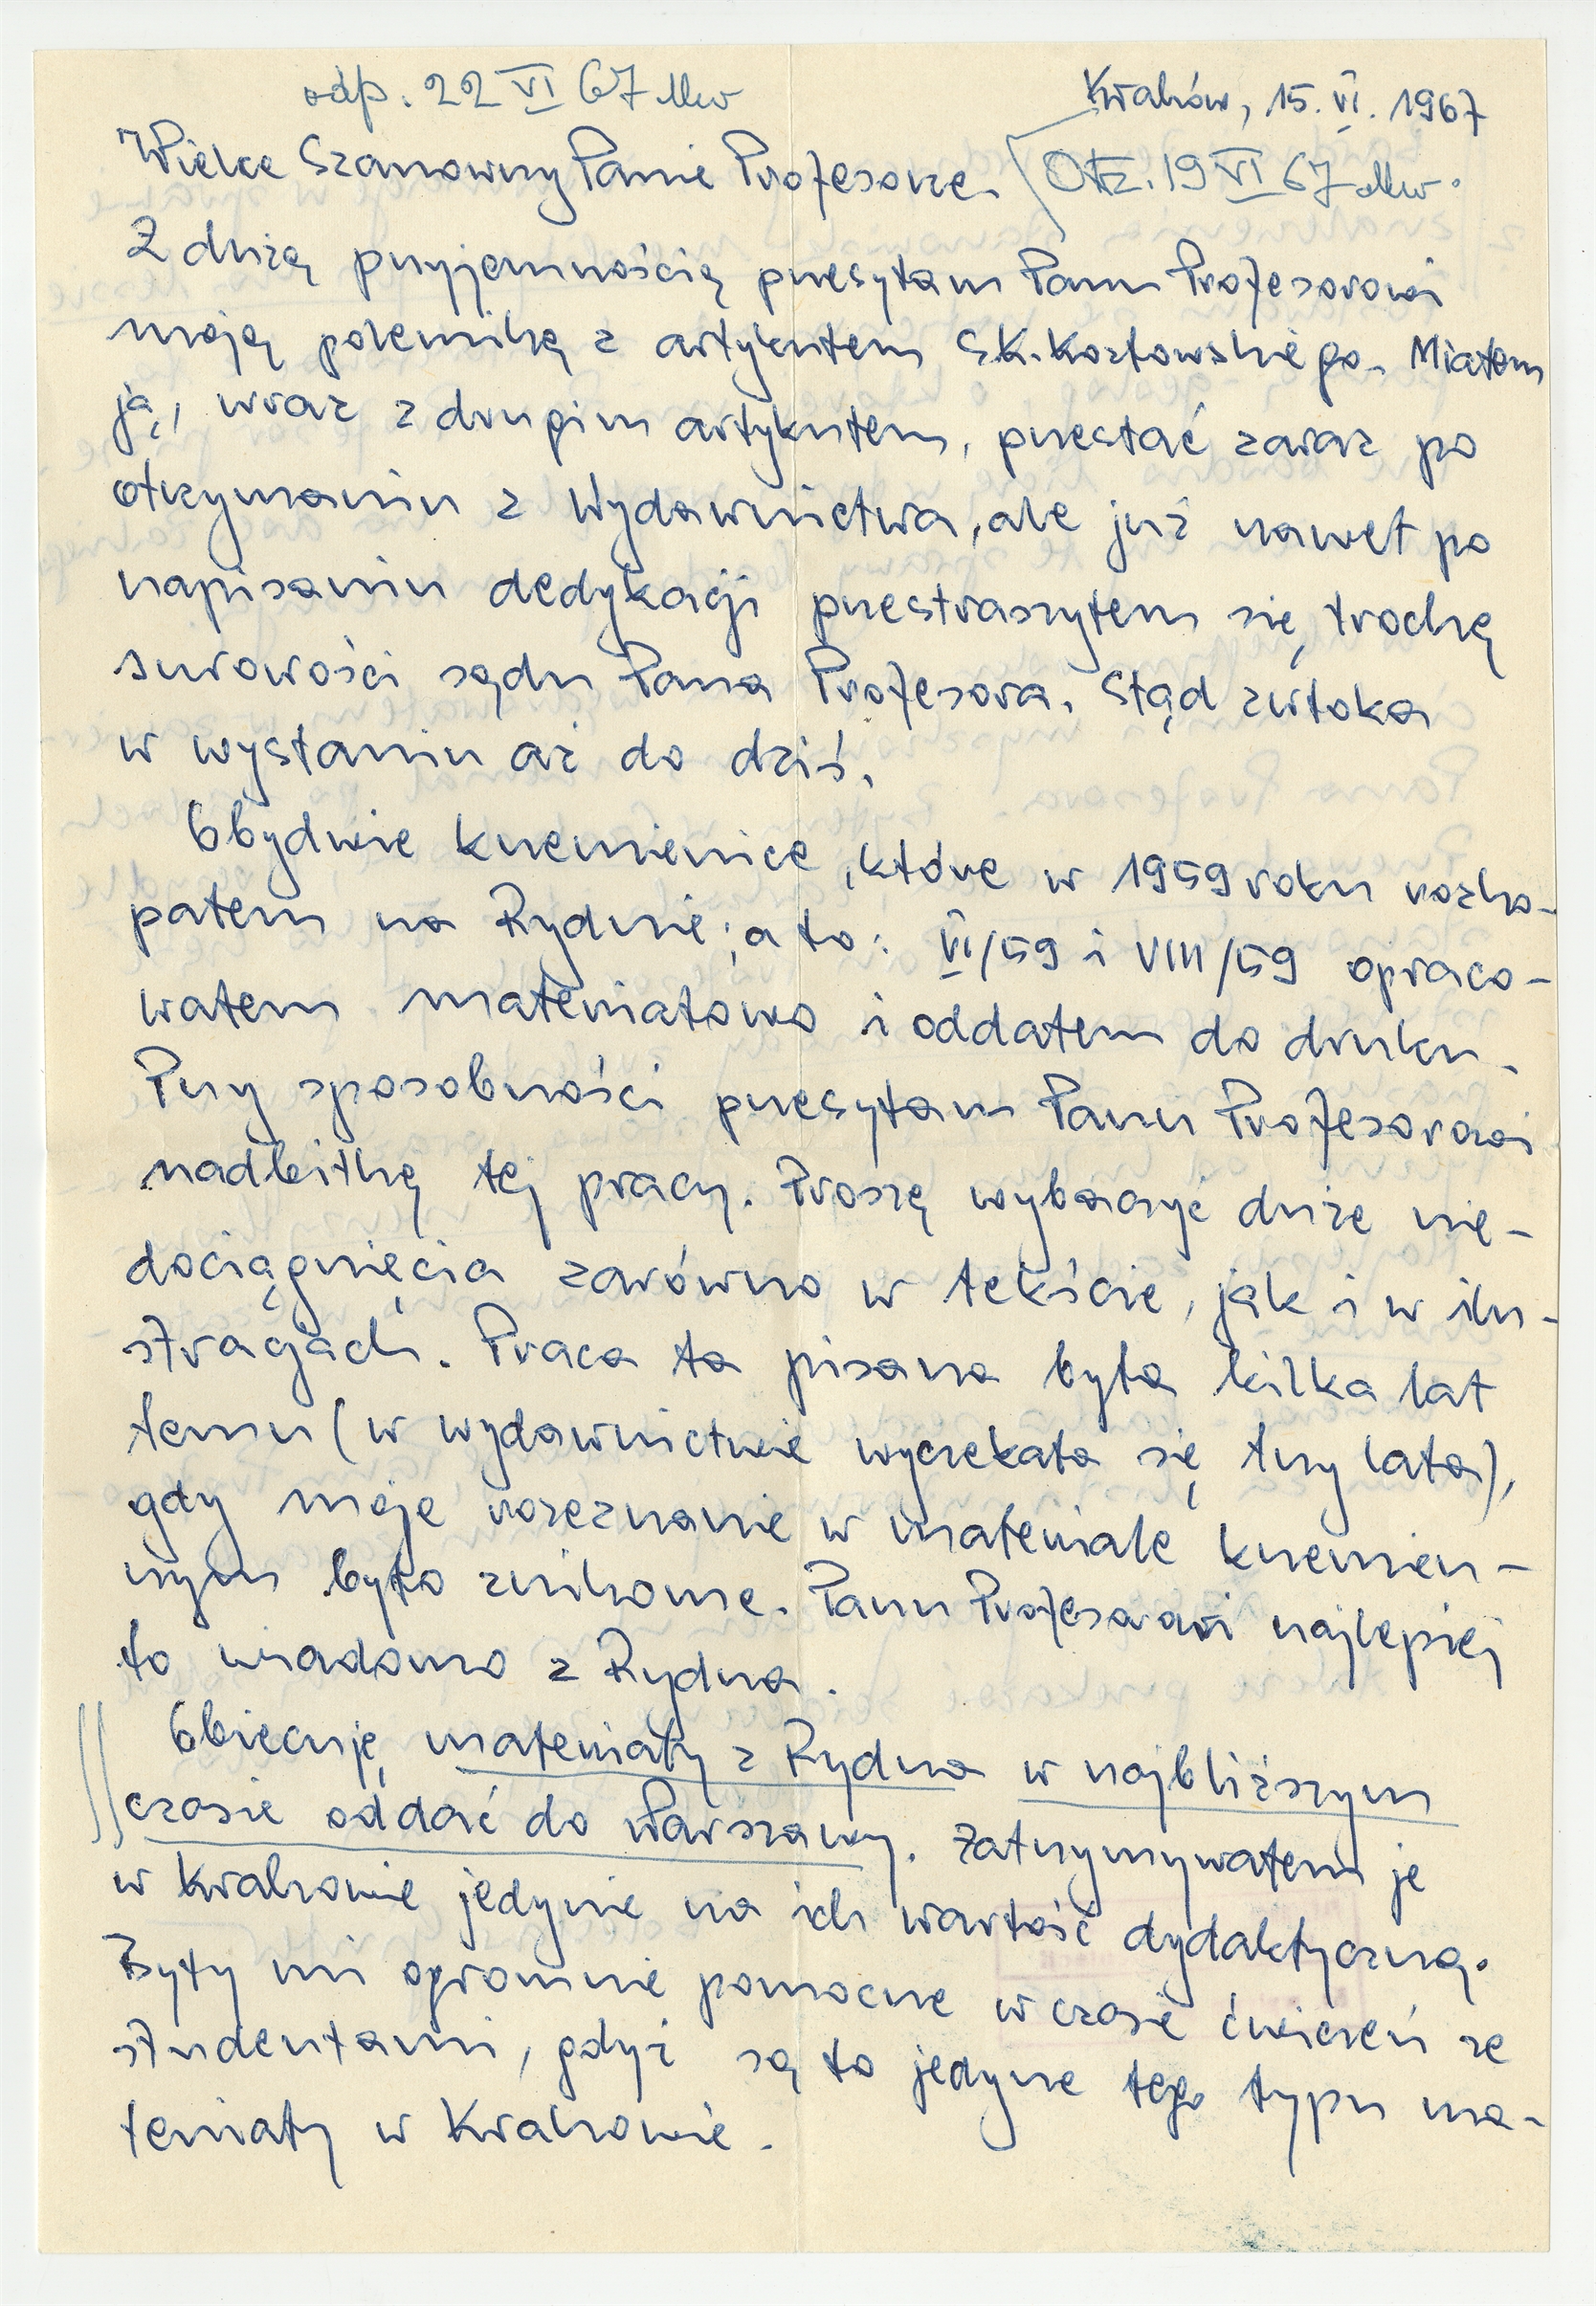 odp. 22 VI 67 Mw
Kraków, 15. VI. 1967
Wielce Szanowny Panie Profesorze.
Otrz. 19 VI 67 Mw.
Z dużą przyjemnością przesyłam Panu Profesorowi
moją polemikę z artykułem S.K. Kozłowskiego. Miałem
ją, wraz z drugim artykułem, przesłać zaraz po
otrzymaniu z Wydawnictwa, ale już nawet po
napisaniu dedykacji przestraszyłem się trochę
surowości sądu Pana Profesora. Stąd zwłoka
w wysłaniu aż do dziś.
Obydwie krzemienice, które w 1959 roku rozko-
pałem na Rydnie; a to: VI/59 i VIII/59 opraco-
wałem materiałowo i oddałem do druku.
Przy sposobności przesyłam Panu Profesorowi
nadbitkę tej pracy. Proszę wybaczyć duże nie-
dociągnięcia zarówno w tekście, jak i w ilu-
stracjach. Praca ta pisana była kilka lat
temu (w wydawnictwie wyczekała się trzy lata),
gdy moje rozeznanie w materiale krzemien-
nym było znikome. Panu Profesorowi najlepiej
to wiadomo z Rydna.
Obiecuję materiały z Rydna w najbliższym
czasie oddać do Warszawy. Zatrzymywałem je
w Krakowie jedynie na ich wartość dydaktyczną.
Były mi ogromnie pomocne w czasie ćwiczeń ze
studentami, gdyż są to jedyne tego typu ma-
teriały w Krakowie.